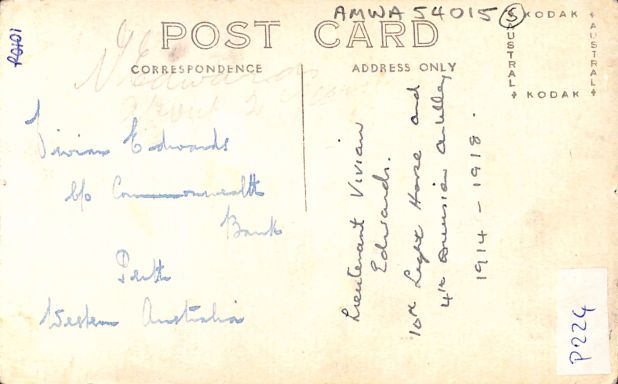 AMWA 54015 (5)
R0101
POST CARD
CORRESPONDENCE
ADDRESS ONLY
KODAK
AUSTRAL
AUSTRAL
KODAK
V Edwards
about 2
Vivian Edwards
c/o Commonwealth
Bank
Perth
Western Australia
Lieutenant Vivian
Edwards.
10th Light Horse and
4th Division Artillery
1914 - 1918.
P224